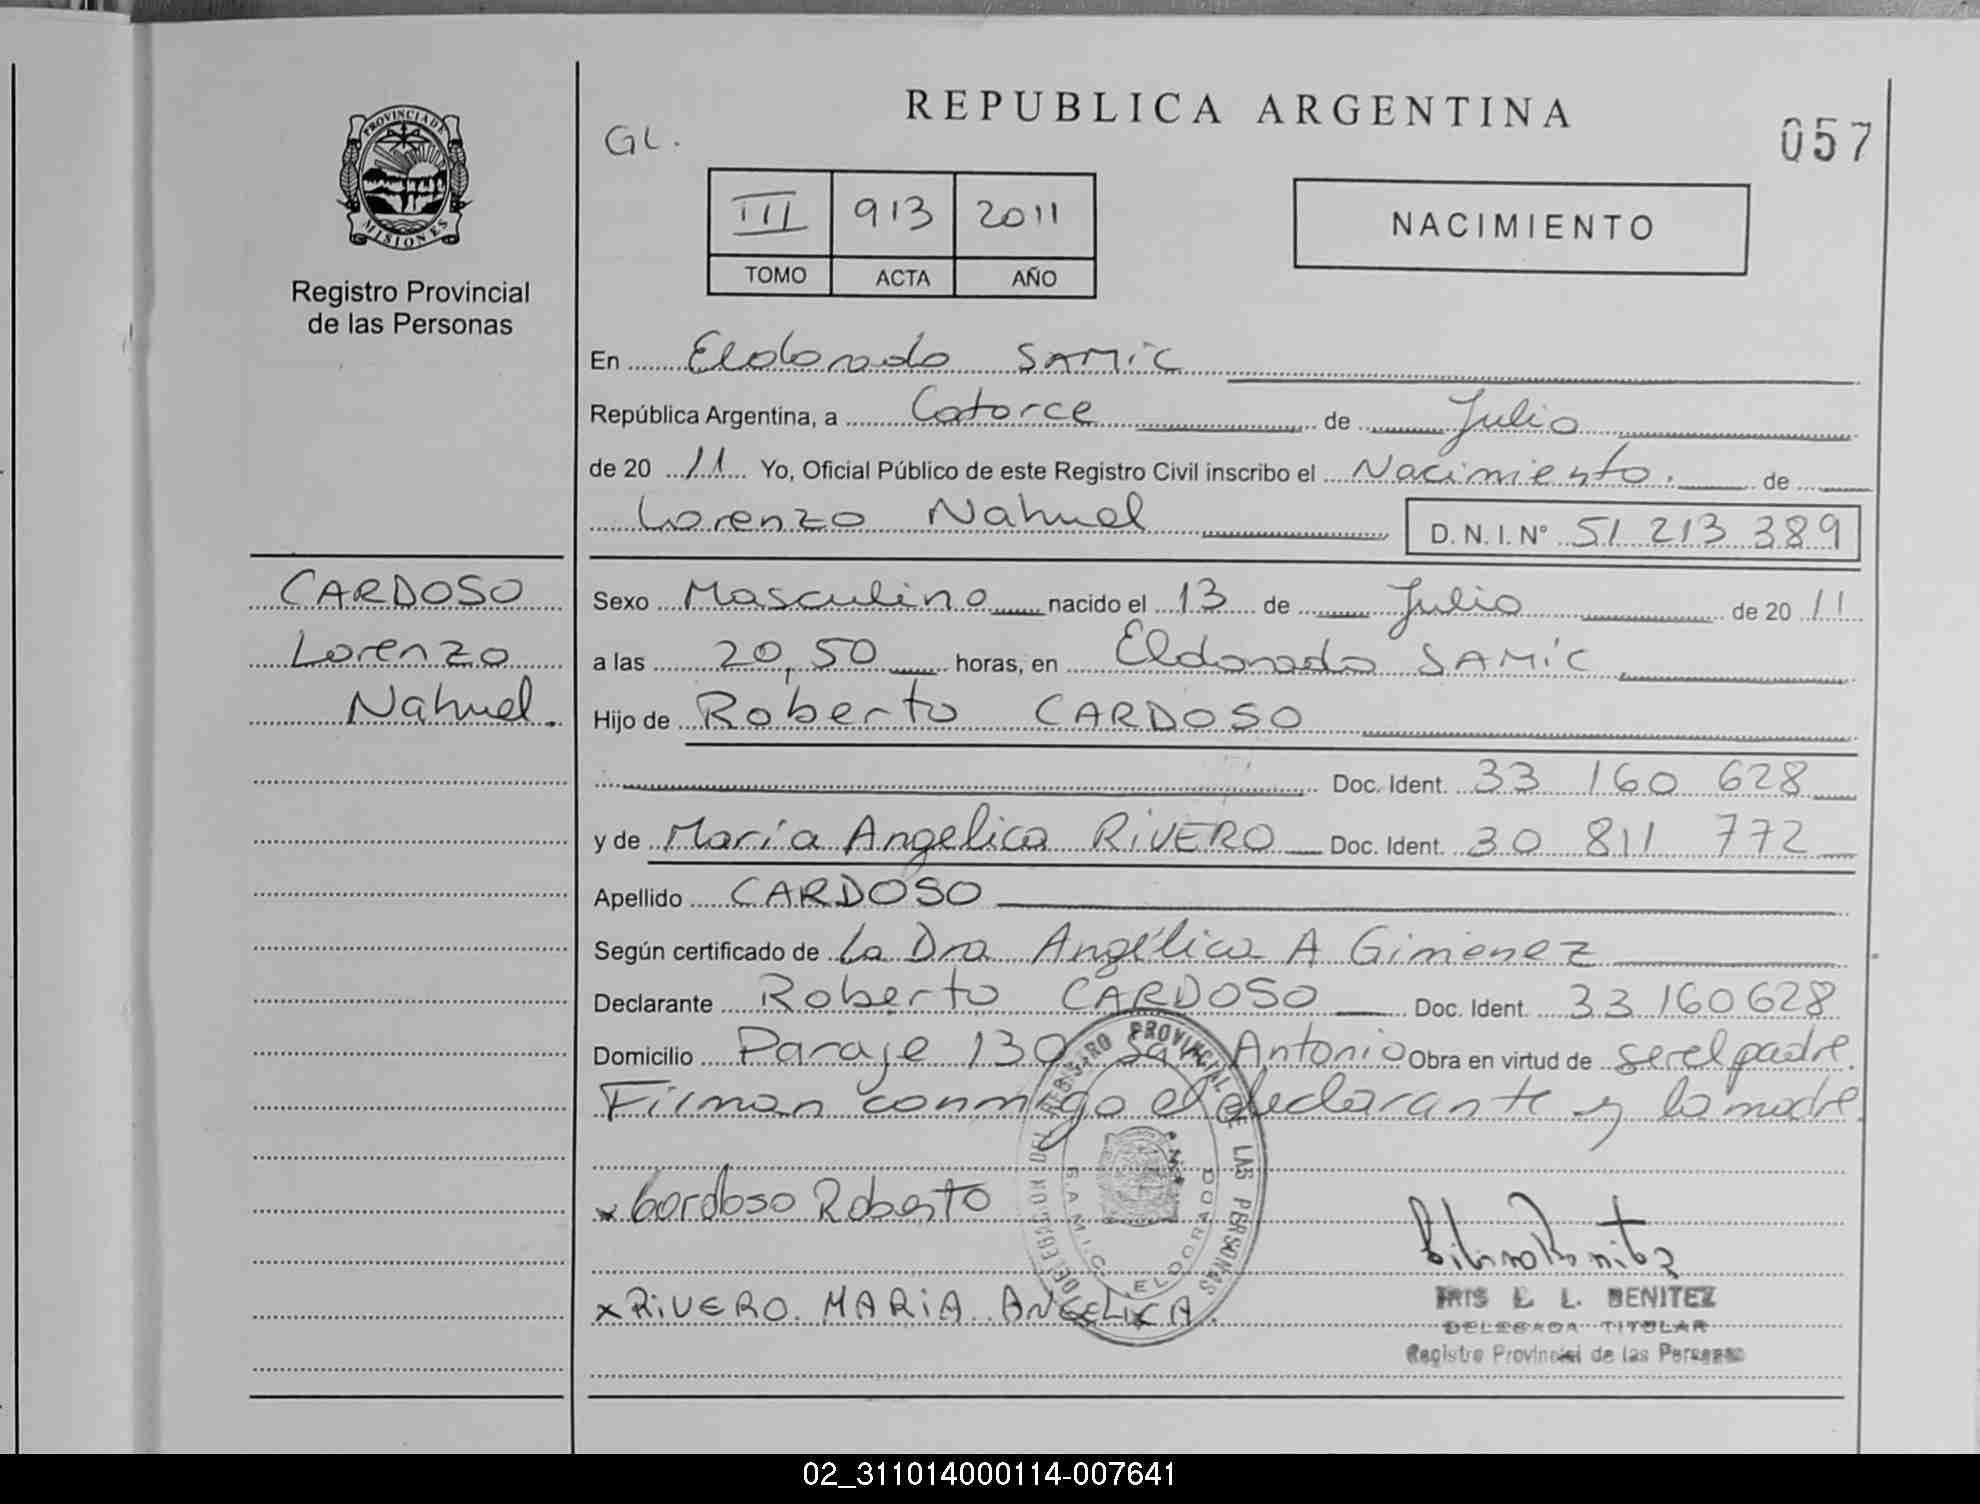 REPUBLICA ARGENTINA
GL.
057
PROVINCIA DE
MISIONES
Registro Provincial
de las Personas
III 913 2011
TOMO ACTA AÑO
NACIMIENTO
En Eldorado SAMiC
República Argentina, a Catorce de Julio
de 20 11 Yo, Oficial Público de este Registro Civil inscribo el Nacimiento. de
Lorenzo Nahuel D. N. I. N° 51 213 389
CARDOSO
Lorenzo
Nahuel.
Sexo Masculino nacido el 13 de Julio de 20 11
a las 20,50 horas, en Eldorado SAMiC
Hijo de Roberto CARDOSO
Doc. Ident. 33 160 628
y de María Angelica RiVERO Doc. Ident. 30 811 772
Apellido CARDOSO
Según certificado de La Dra Angélica A Gimenez
Declarante Roberto CARDOSO Doc. Ident. 33 160 628
Domicilio Paraje 130 San Antonio Obra en virtud de ser el padre.
Firman conmigo el declarante y la madre.
x Cardoso Roberto
x RiVERO. MARiA ANGELICA.
DELEGACION DEL REGISTRO PROVINCIAL DE LAS PERSONAS
S.A.M.I.C. ELDORADO
IRIS L. L. BENITEZ
DELEGADA TITULAR
Registro Provincial de las Personas
02_311014000114-007641